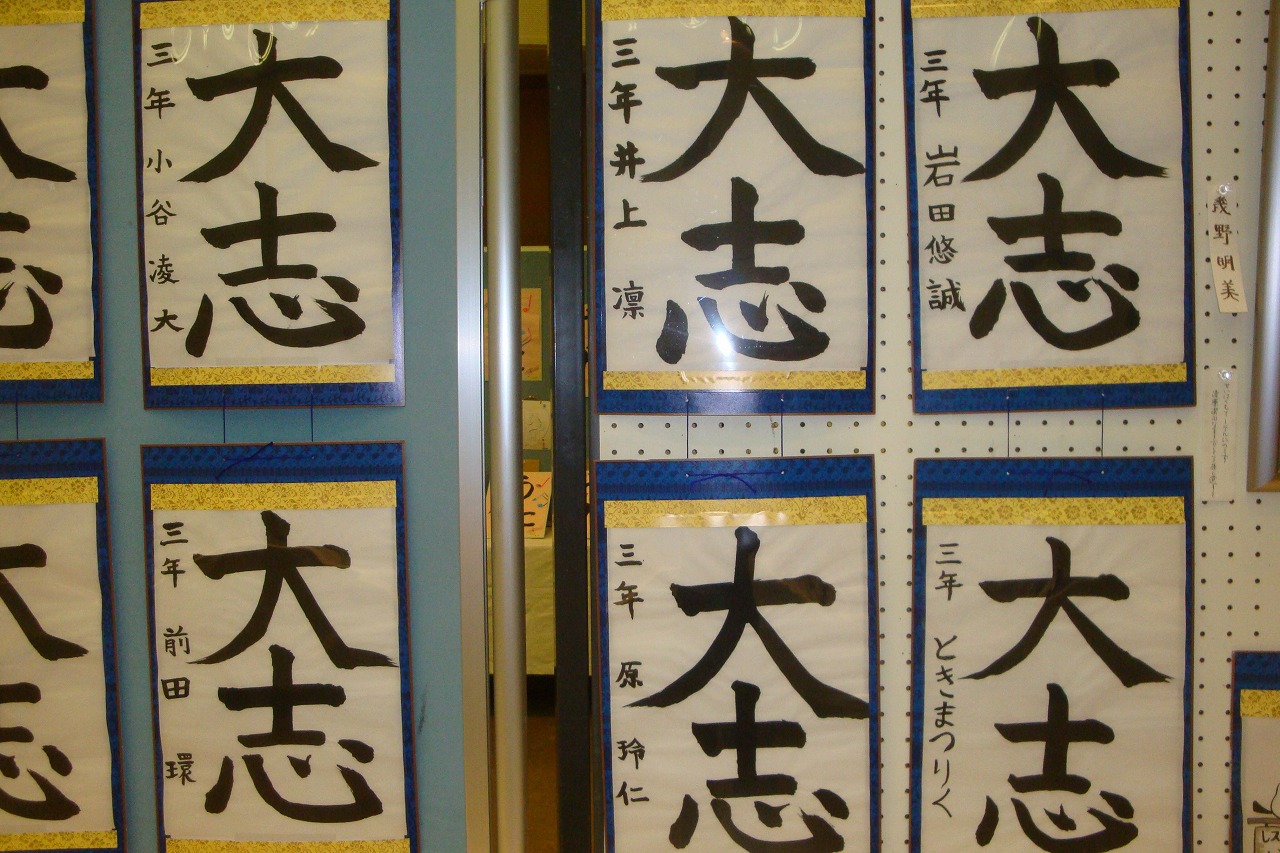 大志
三年 小谷凌大
大志
三年 井上 凛
大志
三年 岩田悠誠
大志
三年 前田 環
大志
三年 原 玲仁
大志
三年 ときまつりく
野明美